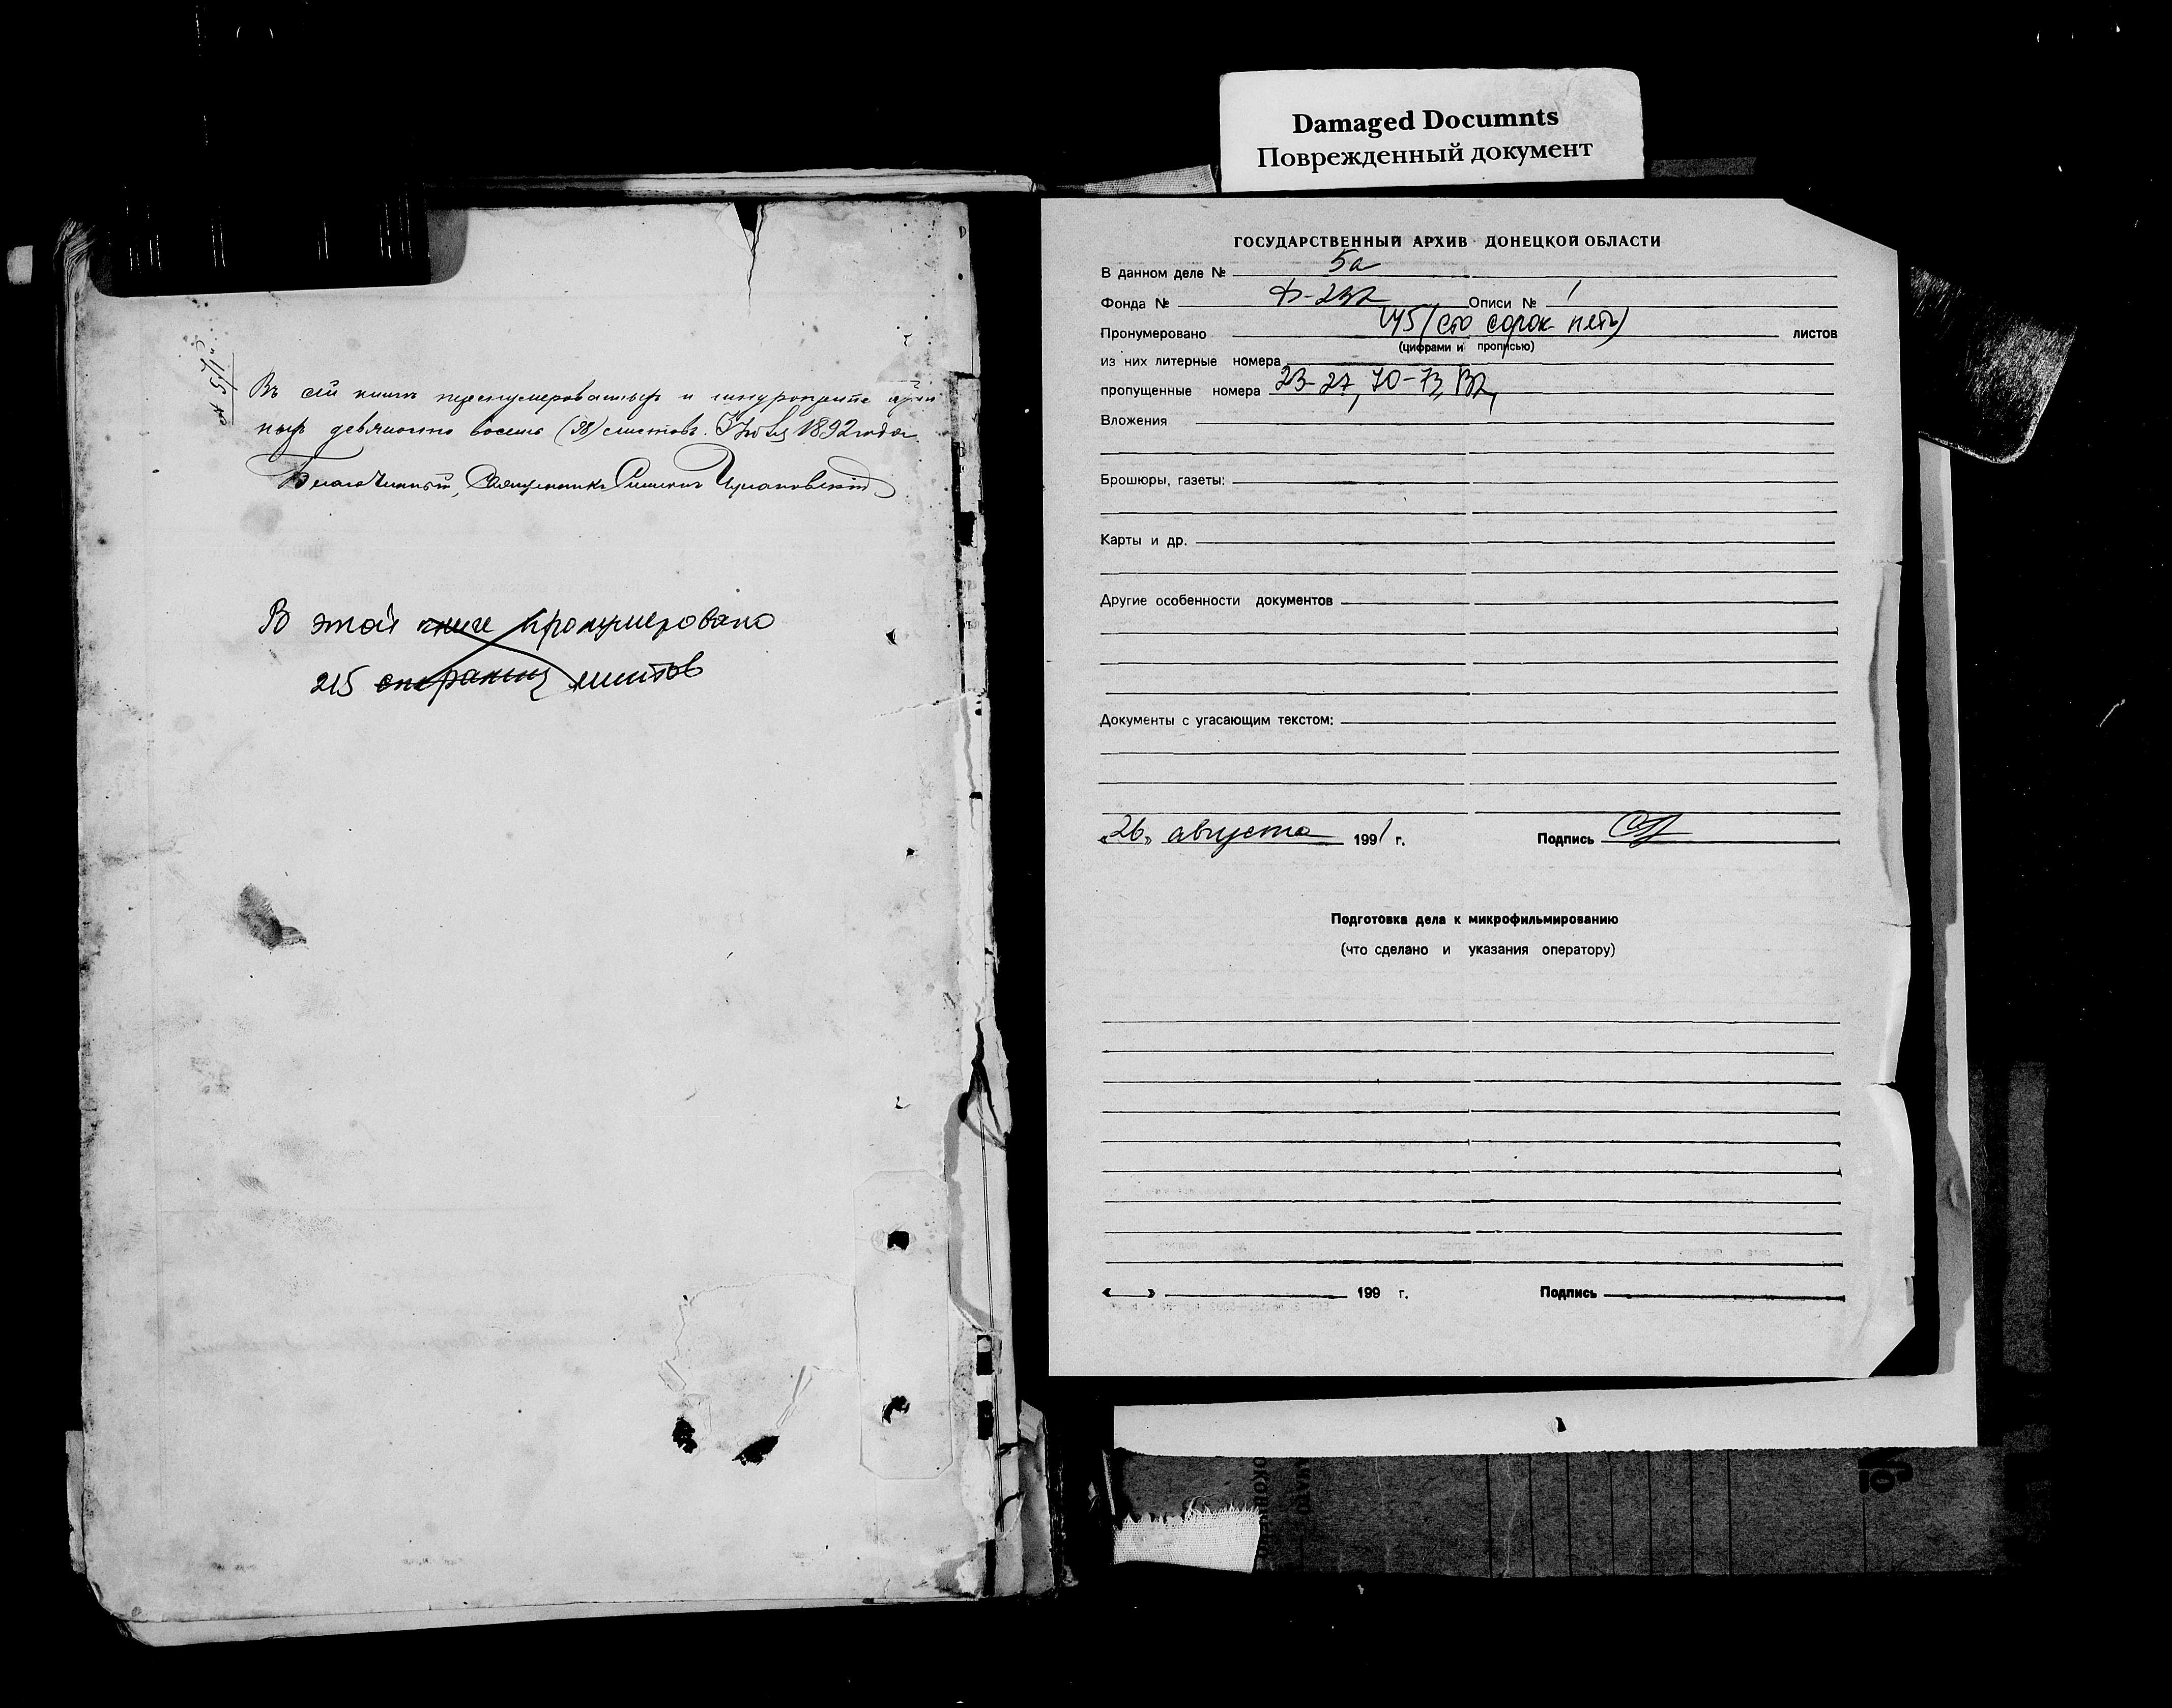 Damaged Documnts
Поврежденный документ
Въ сей книгѣ перенумерованныхъ и
девяносто восемь (98) листовъ. 1892 года
Благочинный, Священникъ
В этой книге пронумеровано
215 страниц листов
ГОСУДАРСТВЕННЫЙ АРХИВ ДОНЕЦКОЙ ОБЛАСТИ
В данном деле № 5а
Фонда № Ф-232 Описи № 1
Пронумеровано 145 (сто сорок пять) листов
(цифрами и прописью)
из них литерные номера
пропущенные номера 23-27, 70-73,
Вложения
Брошюры, газеты:
Карты и др.
Другие особенности документов
Документы с угасающим текстом:
«26» августа 1991 г. Подпись
Подготовка дела к микрофильмированию
(что сделано и указания оператору)
« » 199 г. Подпись